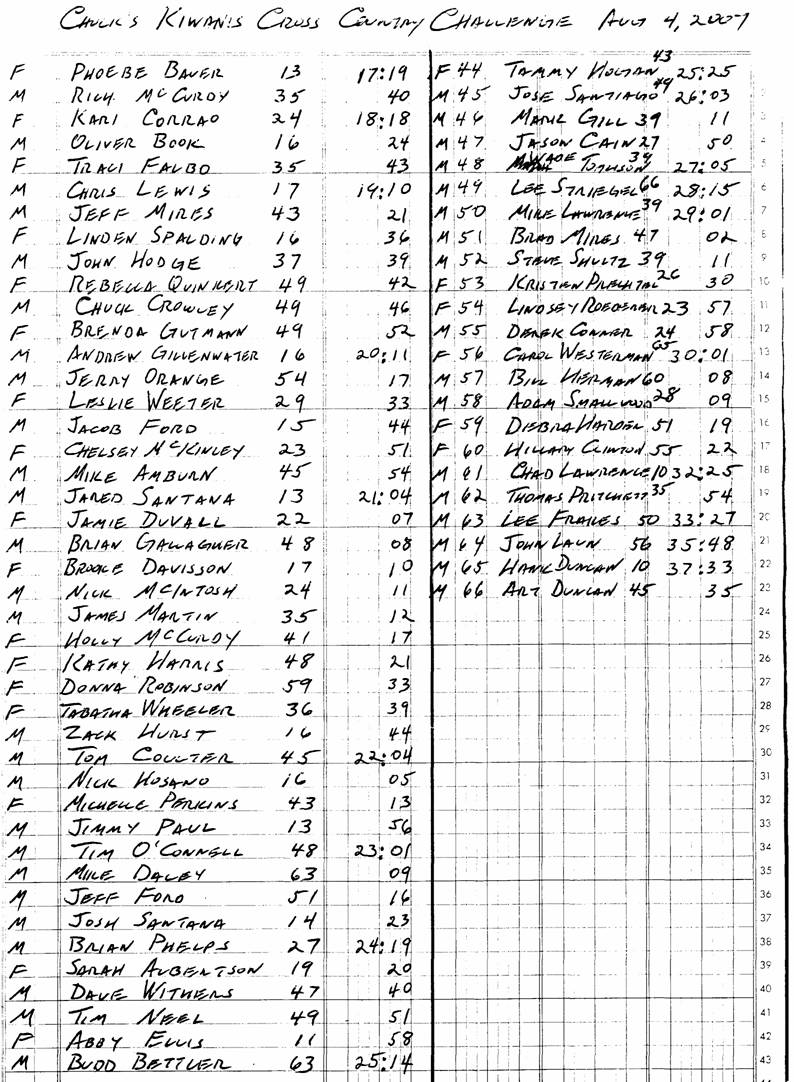 CHUCK'S KIWANIS CROSS COUNTRY CHALLENGE AUG 4, 2007
F PHOEBE BAUER 13 17:19
M RICH MCCURDY 35 40
F KARI CORRAO 24 18:18
M OLIVER BOOK 16 24
F TRACI FALBO 35 43
M CHRIS LEWIS 17 19:10
M JEFF MIRES 43 21
F LINDEN SPALDING 16 36
M JOHN HODGE 37 39
F REBECCA QUINKERT 49 42
M CHUCK CROWLEY 49 46
F BRENDA GUTMANN 49 52
M ANDREW GILLENWATER 16 20:11
M JERRY ORANGE 54 17
F LESLIE WEETER 29 33
M JACOB FORD 15 44
F CHELSEY MCKINLEY 23 51
M MIKE AMBURN 45 54
M JARED SANTANA 13 21:04
F JAMIE DUVALL 22 07
M BRIAN GALLAGHER 48 08
F BROOKE DAVISSON 17 10
M NICK MCINTOSH 24 11
M JAMES MARTIN 35 12
F HOLLY MCCURDY 41 17
F KATHY HARRIS 48 21
F DONNA ROBINSON 59 33
F TABATHA WHEELER 36 39
M ZACK HURST 16 44
M TOM COULTER 45 22:04
M NICK HOSANO 16 05
F MICHELLE PERKINS 43 13
M JIMMY PAUL 13 56
M TIM O'CONNELL 48 23:01
M MIKE DALEY 63 09
M JEFF FORD 51 16
M JOSH SANTANA 14 23
M BRIAN PHELPS 27 24:19
F SARAH ALBERTSON 19 20
M DAVE WITHERS 47 40
M TIM NEEL 49 51
F ABBY ELLIS 11 58
M BUDD BETTLER 63 25:14
F 44 TAMMY HOLTAN 43 25:25
M 45 JOSE SANTIAGO 49 26:03
M 46 MARK GILL 39 11
M 47 JASON CAIN 27 50
M 48 WADE TOMLISON 39 27:05
M 49 LEE STRIEGEL 66 28:15
M 50 MIKE LAWRENCE 39 29:01
M 51 BRAD MIRES 47 02
M 52 STEVE SHULTZ 39 11
F 53 KRISTEN PRECHTEL 26 30
F 54 LINDSEY ROEDERER 23 57
M 55 DEREK CONNER 24 58
F 56 CAROL WESTERMAN 65 30:01
M 57 BILL HERMAN 60 08
M 58 ADAM SMALLWOOD 28 09
F 59 DIEBRA HARDEN 51 19
F 60 HILLARY CLINTON 55 22
M 61 CHAD LAWRENCE 10 32:25
M 62 THOMAS PRITCHETT 35 54
M 63 LEE FRAKES 50 33:27
M 64 JOHN LAUN 56 35:48
M 65 HANK DUNCAN 10 37:33
M 66 ART DUNCAN 45 35
2
3
4
5
6
7
8
9
10
11
12
13
14
15
16
17
18
19
20
21
22
23
24
25
26
27
28
29
30
31
32
33
34
35
36
37
38
39
40
41
42
43